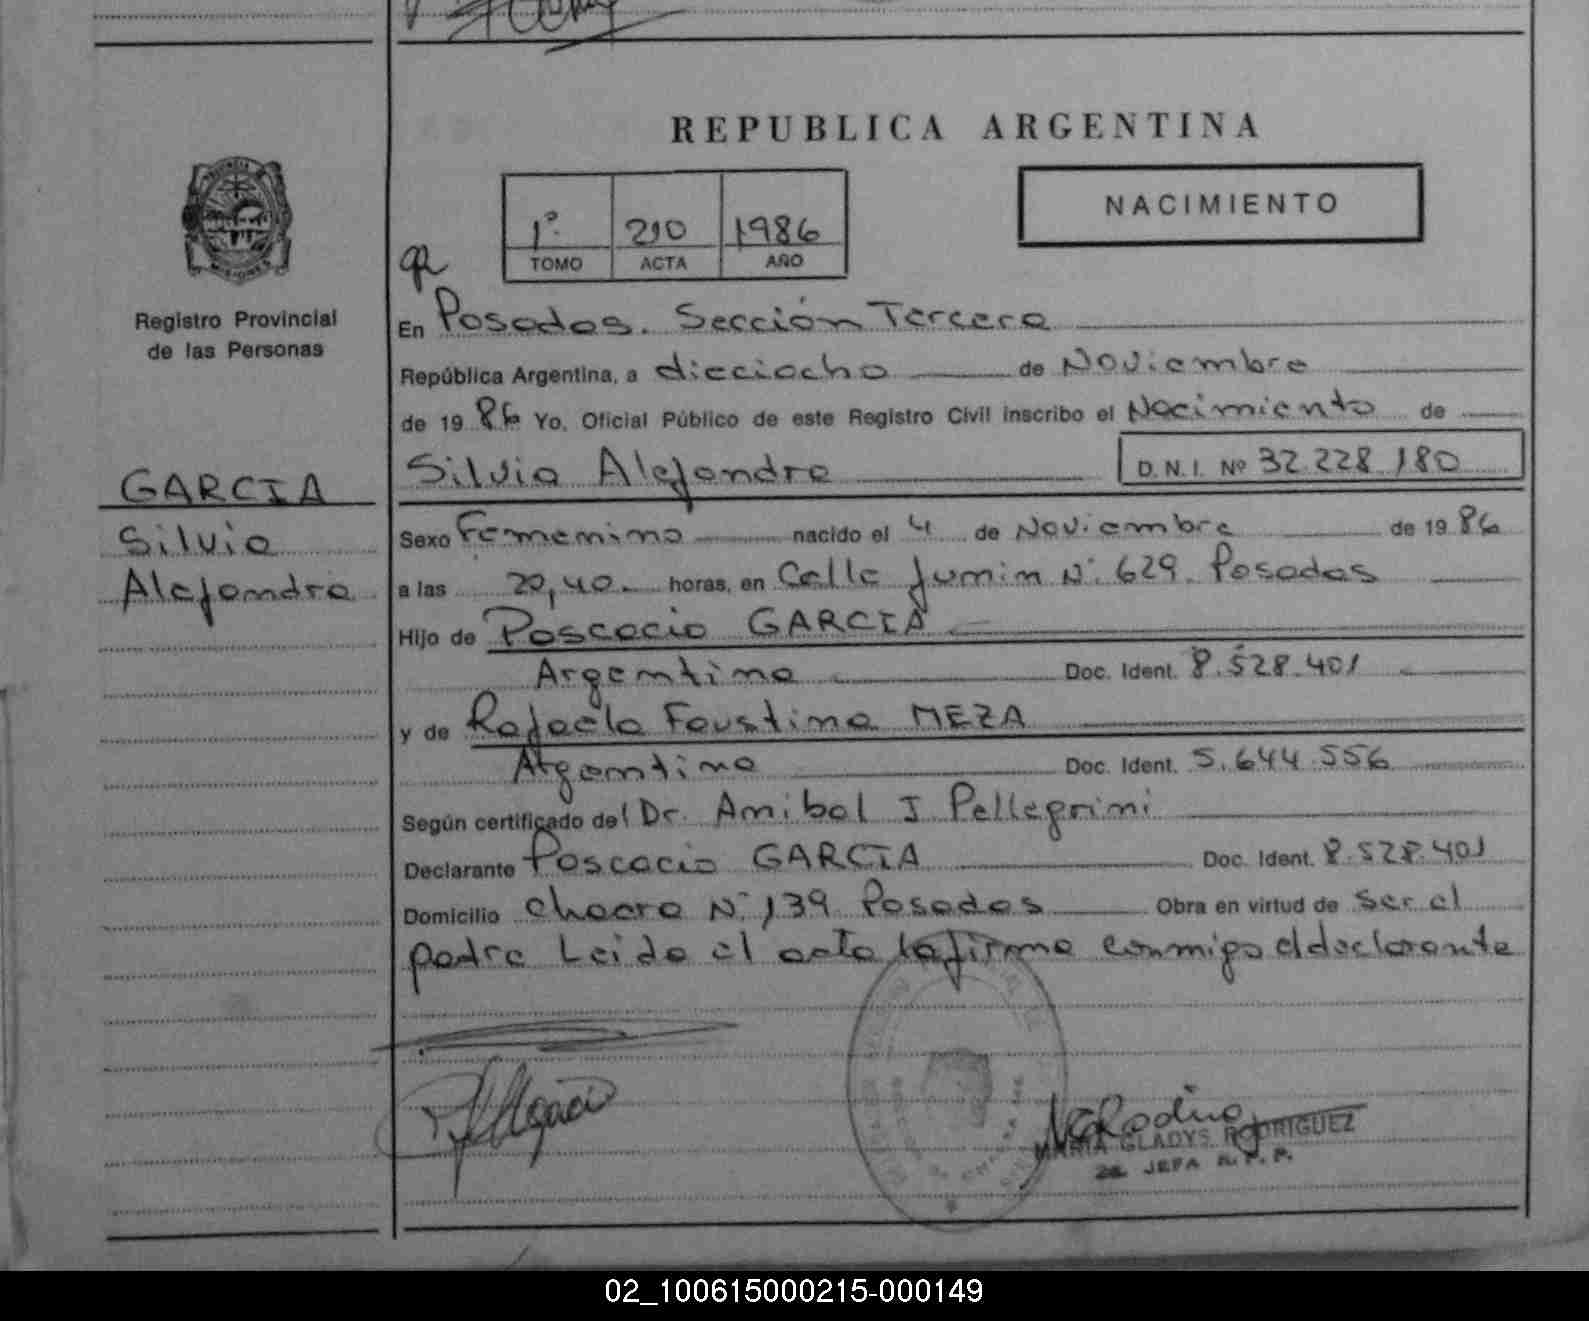 REPUBLICA ARGENTINA
NACIMIENTO
1º 210 1986
TOMO ACTA AÑO
PROVINCIA
MISIONES
Registro Provincial
de las Personas
GARCIA
Silvia
Alejandra
En Posadas. Sección Tercera
República Argentina, a dieciocho de Noviembre
de 19 86 Yo, Oficial Público de este Registro Civil inscribo el Nacimiento de
Silvia Alejandra D.N.I. Nº 32.228.180
Sexo Femenino nacido el 4 de Noviembre de 19 86
a las 20,40. horas, en Calle Junin Nº 629. Posadas
Hijo de Pascacio GARCIA
Argentino Doc. Ident. 8.528.401
y de Rafaela Faustina MEZA
Argentina Doc. Ident. 5.644.556
Según certificado del Dr. Anibal J Pellegrini
Declarante Pascacio GARCIA Doc. Ident. 8.528.401
Domicilio Chacra Nº 139 Posadas Obra en virtud de Ser el
padre Leida el acta la firma conmigo el declarante
MARIA GLADYS RODRIGUEZ
2a JEFA R.P.P.
02_100615000215-000149